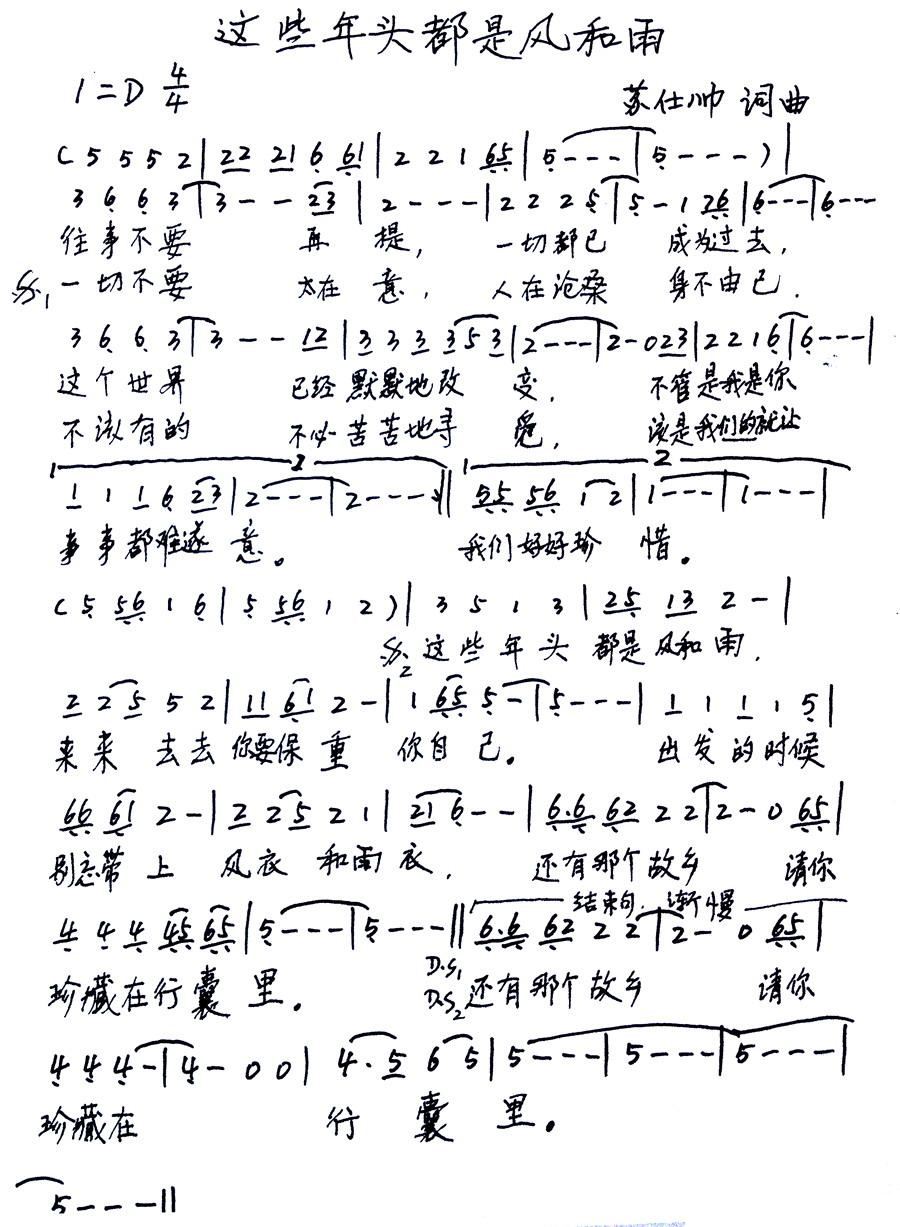 这些年头都是风和雨
1=D 4/4
苏仕帅 词曲
( 5 5 5 2 | 22 21 6 61 | 2 2 1 65 | 5 - - - | 5 - - - ) |
3 6 6 3 | 3 - - 23 | 2 - - - | 2 2 2 5 | 5 - 1 26 | 6 - - - | 6 - - -
往事不要 再 提, 一切都已 成为过去,
𝄋1 一切不要 太在 意, 人在沧桑 身不由已.
3 6 6 3 | 3 - - 12 | 3 3 3 3 5 3 | 2 - - - | 2 - 0 23 | 2 2 1 6 | 6 - - - |
这个世界 已经默默地改 变, 不管是我是你
不该有的 不必苦苦地寻 觅, 该是我们的就让
1 2 1 2
1 1 1 6 23 | 2 - - - | 2 - - - :|| 55 56 1 2 | 1 - - - | 1 - - - |
事事都难遂 意。 我们好好珍 惜。
( 5 56 1 6 | 5 56 1 2 ) | 3 5 1 3 | 25 13 2 - |
𝄋2 这些年头 都是风和雨,
2 2 5 5 2 | 11 61 2 - | 1 65 5 - | 5 - - - | 1 1 1 1 5 |
来来 去去你要保 重 你自 己。 出发的时候
66 61 2 - | 2 2 5 2 1 | 21 6 - - | 6.6 62 2 2 | 2 - 0 65 |
别忘带 上 风衣 和雨衣, 还有那个故乡 请你
结束句. 渐慢
4 4 4 45 65 | 5 - - - | 5 - - - || 6.6 62 2 2 | 2 - 0 65 |
珍藏在行囊 里。 D.S1 D.S2 还有那个故乡 请你
4 4 4 - | 4 - 0 0 | 4 . 5 6 5 | 5 - - - | 5 - - - | 5 - - - |
珍藏在 行 囊 里。
5 - - - ||